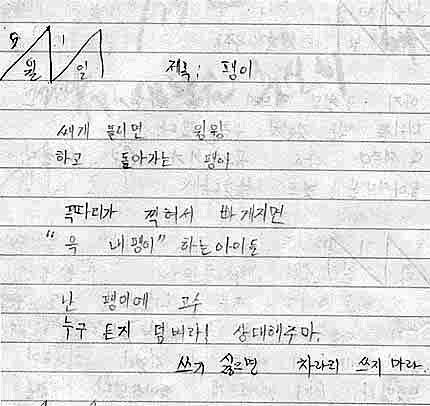 5월 1일
제목: 팽이
쎄게 돌리면 윙윙
하고 돌아가는 팽이
꼭따리가 찍혀서 빠개지면
"윽 내팽이" 하는아이들
난 팽이에 고수
누구 든지 덤벼라! 상대해주마.
쓰기 싫으면 차라리 쓰지 마라.